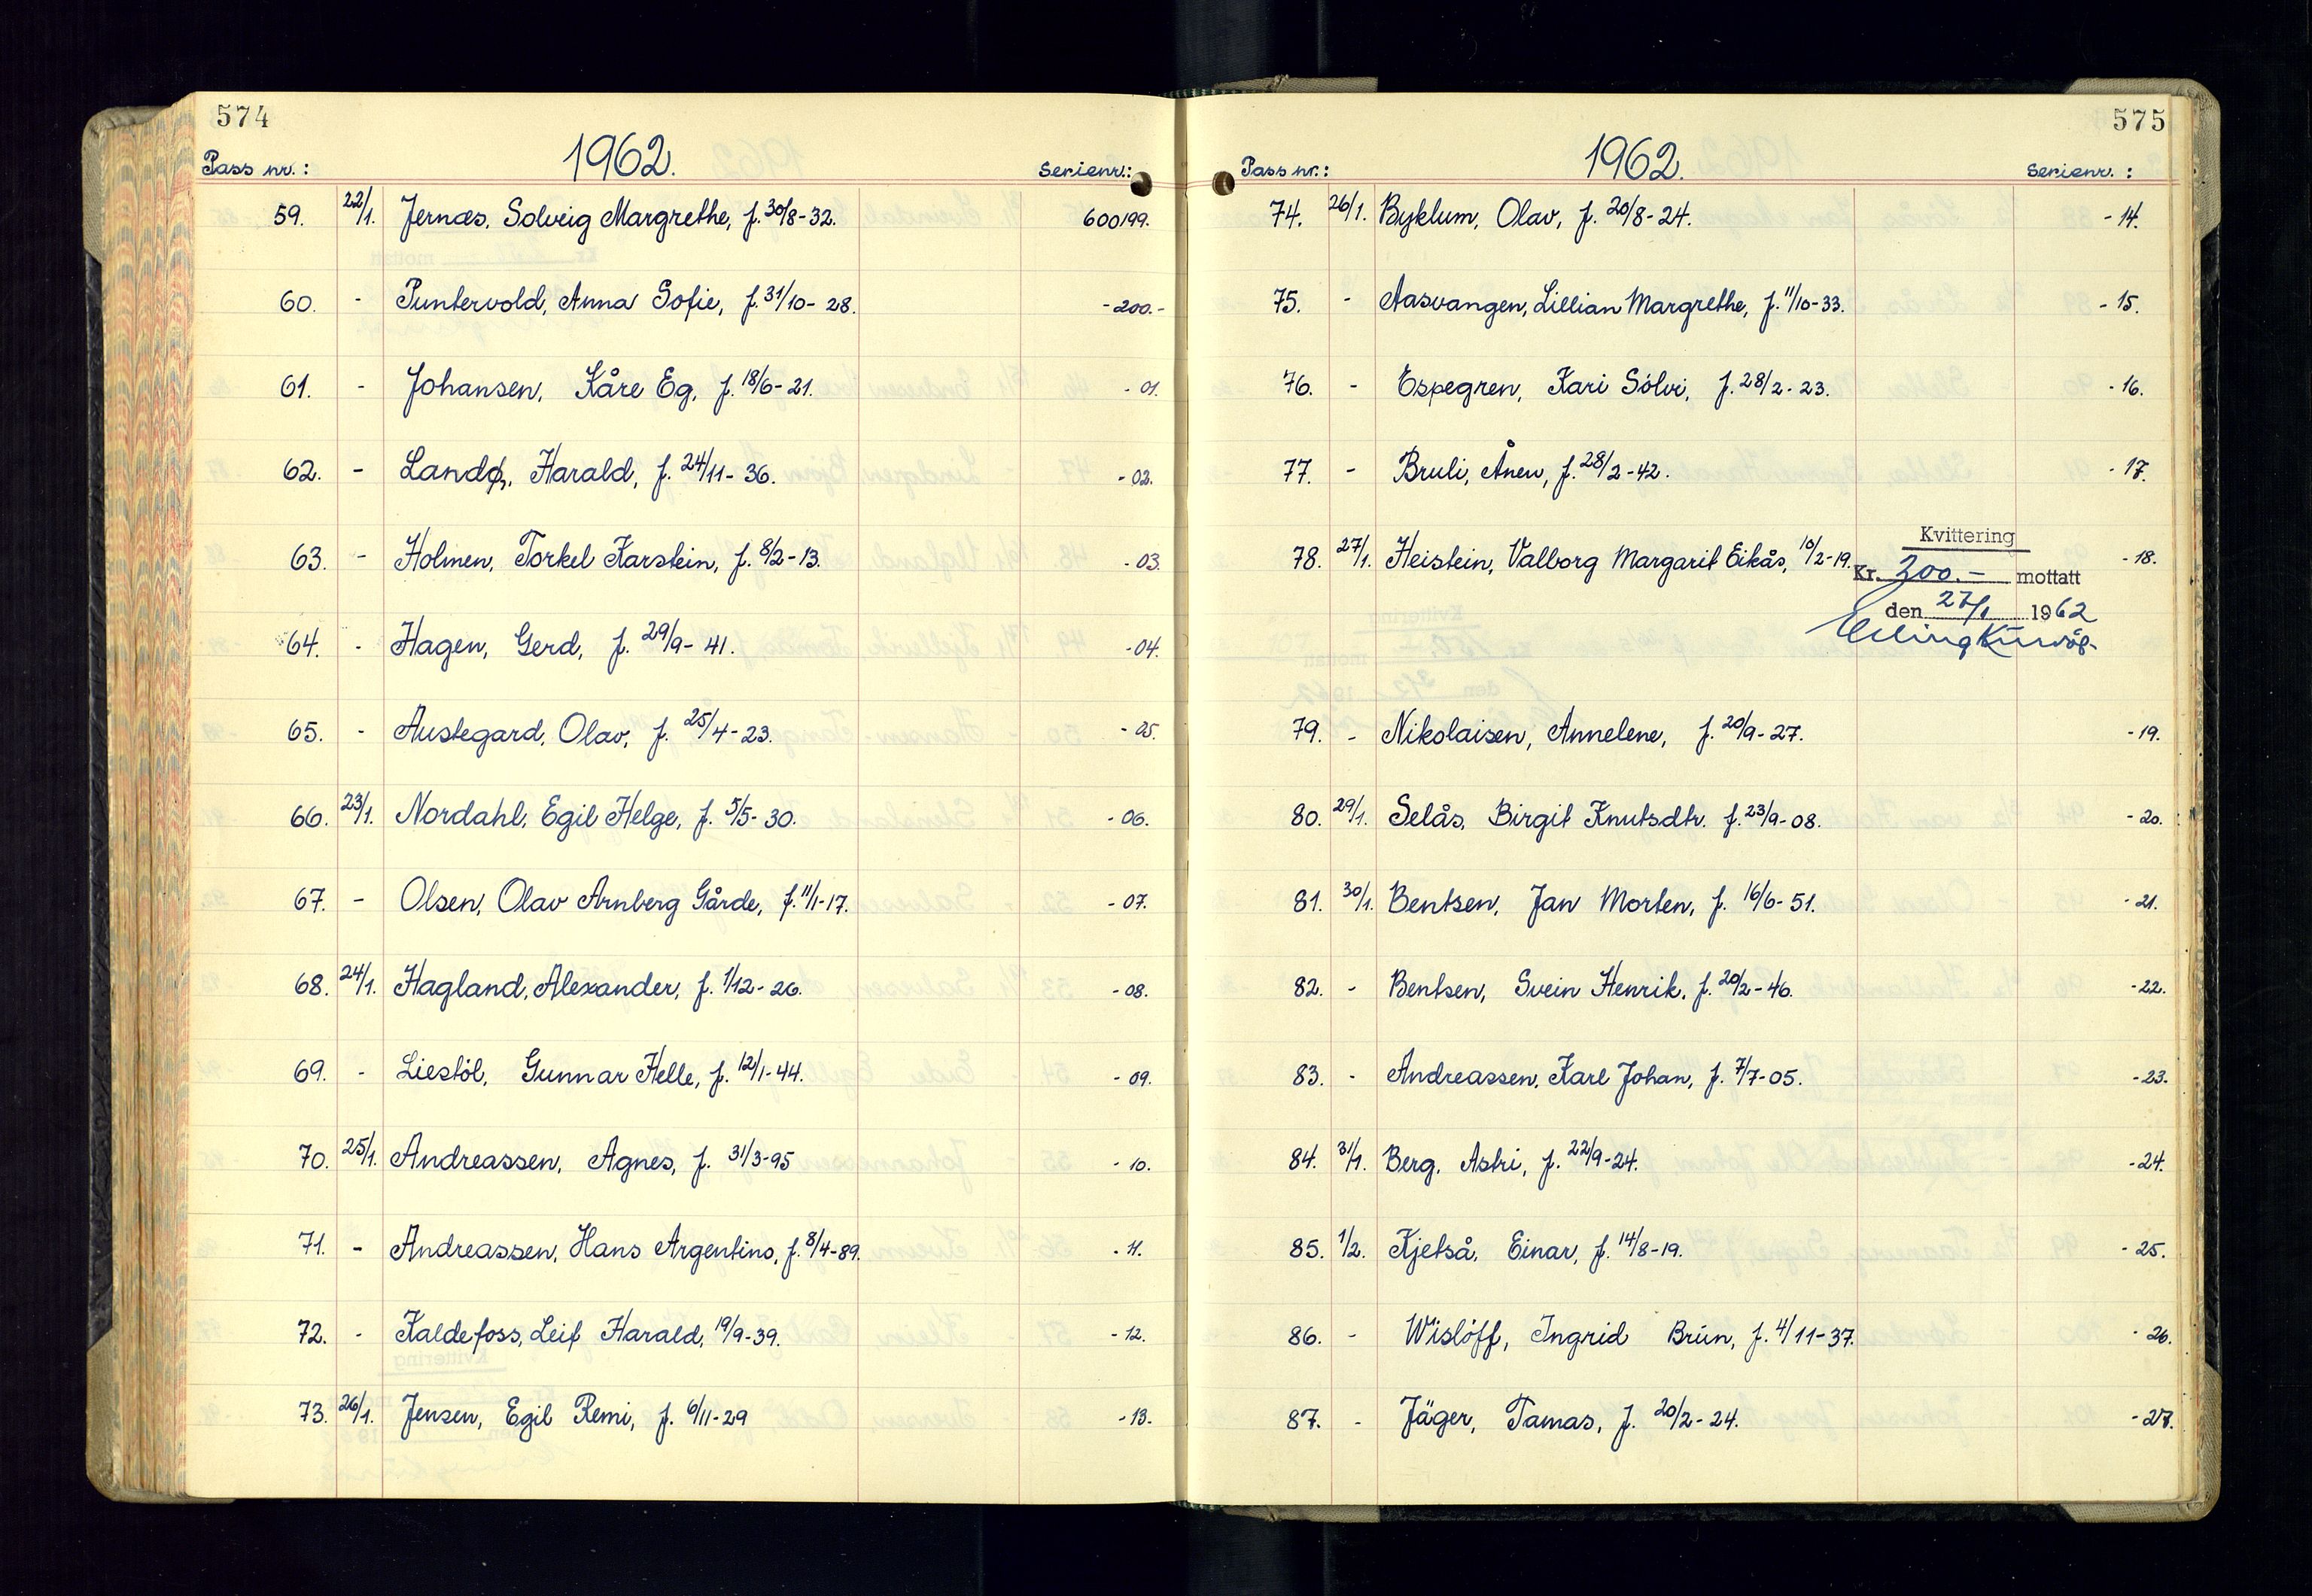 574
1962.
Pass nr.: Serienr.:
59. 22/1. Jernæs, Solveig Margrethe, f. 30/8-32. 600199.
60. - Puntervold, Anna Sofie, f. 31/10-28. -200.-
61. - Johansen, Kåre Eg, f. 18/6-21. -01.
62. - Landø, Harald, f. 24/11-36. -02.
63. - Holmen, Torkel Karstein, f. 8/2-13. -03.
64. - Hagen, Gerd, f. 29/9-41. -04.
65. - Austegard, Olav, f. 25/4-23. -05.
66. 23/1. Nordahl, Egil Helge, f. 5/5-30. -06.
67. - Olsen, Olav Arnberg Gårde, f. 11/1-17. -07.
68. 24/1. Hagland, Alexander, f. 1/12-26. -08.
69. - Liestöl, Gunnar Helle, f. 12/1-44. -09.
70. 25/1. Andreassen, Agnes, f. 31/3-95 -10.
71. - Andreassen, Hans Argentino, f. 8/4-89. -11.
72. - Kaldefoss, Leif Harald, 19/9-39. -12.
73. 26/1. Jensen, Egil Remi, f. 6/11-29 -13.
575
1962.
Pass nr.: Serienr.:
74. 26/1. Byklum, Olav, f. 20/8-24. -14.
75. - Aasvangen, Lillian Margrethe, f. 11/10-33. -15.
76. - Espegren, Kari Sölvi, f. 28/2-23. -16.
77. - Bruli, Ånen, f. 28/2-42. -17.
78. 27/1. Heistein, Valborg Margarit Eikås, 10/2-19. -18.
Kvittering
Kr. 300.- mottatt
den 27/1 1962
79. - Nikolaisen, Annelene, f. 20/9-27. -19.
80. 29/1. Selås, Birgit Knutsdtr. f. 23/9-08. -20.
81. 30/1. Bentsen, Jan Morten, f. 16/6-51. -21.
82. - Bentsen, Svein Henrik, f. 20/2-46. -22.
83. - Andreassen, Karl Johan, f. 7/7-05. -23.
84. 31/1. Berg, Astri, f. 22/9-24. -24.
85. 1/2. Kjetså, Einar, f. 14/8-19. -25.
86. - Wislöff, Ingrid Brün, f. 4/11-37. -26.
87. - Jäger, Tamas, f. 20/2-24. -27.